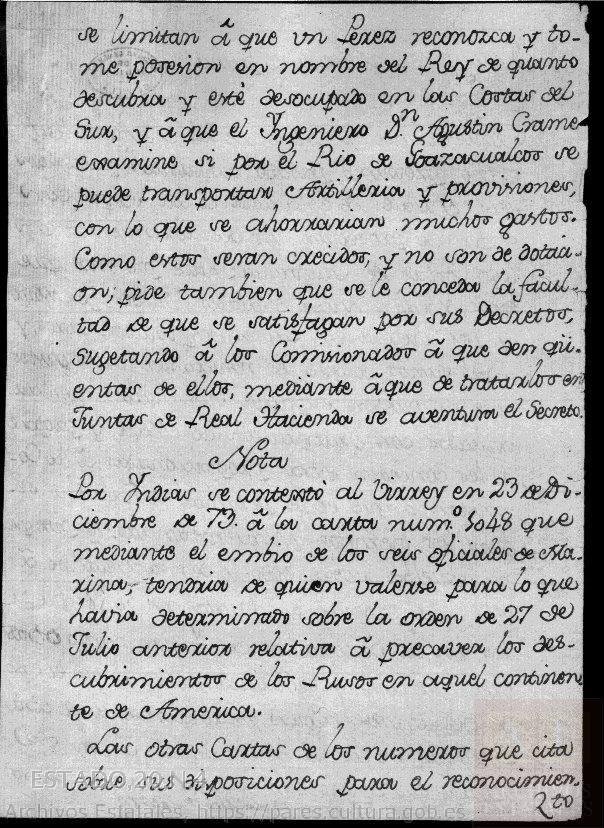 se limitan â que un Perez reconozca y to-
me posesion en nombre del Rey de quanto
descubra y esté desocupado en las Costas del
Sur, y â que el Ingeniero D.n Agustin Crame
examine si por el Rio de Goazacualcos se
puede transportar Artilleria y provisiones,
con lo que se ahorrarian muchos gastos.
Como estos seran crecidos, y no son de dotaci-
on; pide tambien que se le conceda la facul-
tad de que se satisfagan por sus Decretos,
sugetando â los Comisionados â que den qü-
entas de ellos, mediante â que de tratarlos en
Juntas de Real Hacienda se aventura el Secreto.
Nota
Por Indias se contextò al Virrey en 23 de Di-
ciembre de 73. â la carta num.o 1048 que
mediante el embio de los seis oficiales de Ma-
rina, tendria de quien valerse para lo que
havia determinado sobre la orden de 27 de
Julio anterior relativa â precaver los des-
cubrimientos de los Rusos en aquel continen-
te de America.
Las otras Cartas de los numeros que cita
sobre sus disposiciones para el reconocimien-
to
ESTADO,20,N.4
Archivos Estatales, https://pares.cultura.gob.es